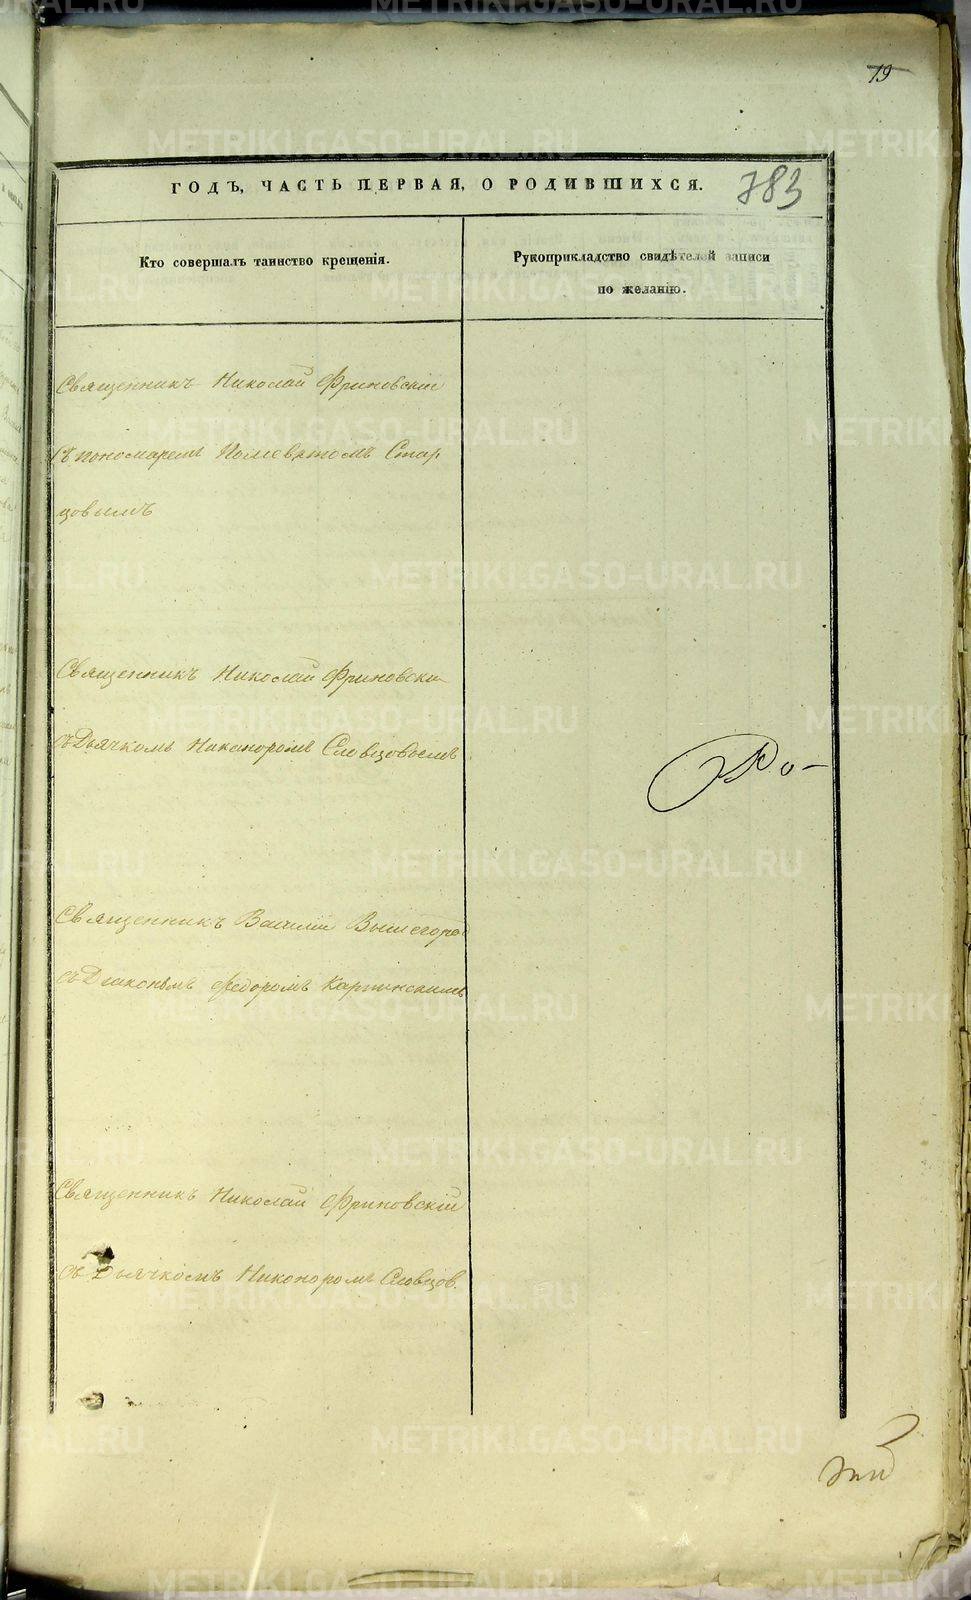 19
ГОДЪ, ЧАСТЬ ПЕРВАЯ, О РОДИВШИХСЯ.
783
Кто совершалъ таинство крещенія.
Рукоприкладство свидѣтелей записи
по желанію.
Священникъ Николай Фриновскій
съ пономаремъ Стар
цовымъ
Священникъ Николай Фриновскій
съ Дьячкомъ Никаноромъ Словцовымъ
Священникъ Василій Вышегоро
съ Діакономъ Федоромъ Карпинскимъ
Священникъ Николай Фриновскій
съ Дьячкомъ Никоноромъ Словцов.
METRIKI.GASO-URAL.RU